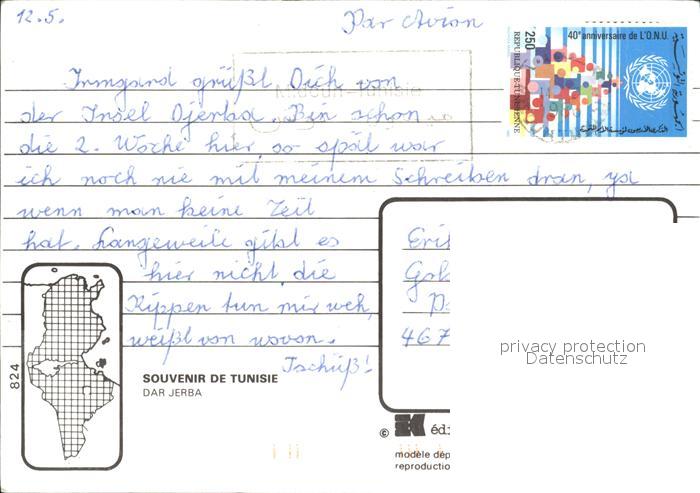 12.5.
Par Avion
40e anniversaire de L'O.N.U.
250
REPUBLIQUE TUNISIENNE
الجمهورية التونسية
Irmgard grüßt Dich von
der Insel Djerba. Bin schon
die 2. Woche hier, so spät war
ich noch nie mit meinem Schreiben dran, ya
wenn man keine Zeit
hat. Langeweile gibt es
hier nicht, die
Rippen tun mir weh,
weißt von wovon.
Tschüß!
824
SOUVENIR DE TUNISIE
DAR JERBA
467
privacy protection
Datenschutz
©
modèle dép
reproductio